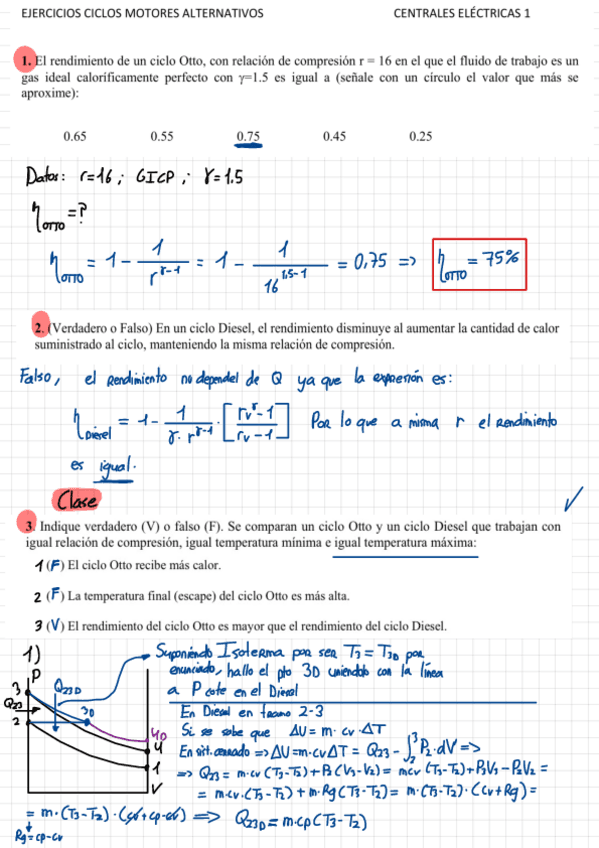 EJERCICIOS CICLOS MOTORES ALTERNATIVOS CENTRALES ELÉCTRICAS 1
1. El rendimiento de un ciclo Otto, con relación de compresión r = 16 en el que el fluido de trabajo es un
gas ideal caloríficamente perfecto con γ=1.5 es igual a (señale con un círculo el valor que más se
aproxime):
0.65 0.55 0.75 0.45 0.25
Datos: r=16 ; GICP ; γ=1.5
η OTTO =?
η OTTO = 1 - 1 / r^(γ-1) = 1 - 1 / 16^(1,5-1) = 0,75 => η OTTO = 75%
2. (Verdadero o Falso) En un ciclo Diesel, el rendimiento disminuye al aumentar la cantidad de calor
suministrado al ciclo, manteniendo la misma relación de compresión.
Falso, el rendimiento no dependel de Q ya que la expresión es:
η Diesel = 1 - 1 / (γ · r^(γ-1)) · [(rv^γ - 1) / (rv - 1)] Por lo que a misma r el rendimiento
es igual.
Clase
3. Indique verdadero (V) o falso (F). Se comparan un ciclo Otto y un ciclo Diesel que trabajan con
igual relación de compresión, igual temperatura mínima e igual temperatura máxima:
1 (F) El ciclo Otto recibe más calor.
2 (F) La temperatura final (escape) del ciclo Otto es más alta.
3 (V) El rendimiento del ciclo Otto es mayor que el rendimiento del ciclo Diesel.
1) Suponiendo Isoterma por ser T3 = T3D por
P enunciado, hallo el pto 3D uniendolo con la línea
3 Q23D a P cote en el Diesel
Q23 3D En Diesel en tramo 2-3
2 Si se sabe que ΔU = m · cv · ΔT
4D En sist. cerrado => ΔU = m · cv ΔT = Q23 - ∫₂³ P2 · dV =>
4 => Q23 = m · cv (T3-T2) + P2 (V3-V2) = mcv (T3-T2) + P3V3 - P2V2 =
1
V = m·cv · (T3-T2) + m·Rg (T3-T2) = m · (T3-T2) · (cv+Rg) =
= m · (T3-T2) · (cv + cp - cv) => Q23D = m · cp (T3-T2)
Rg = cp-cv